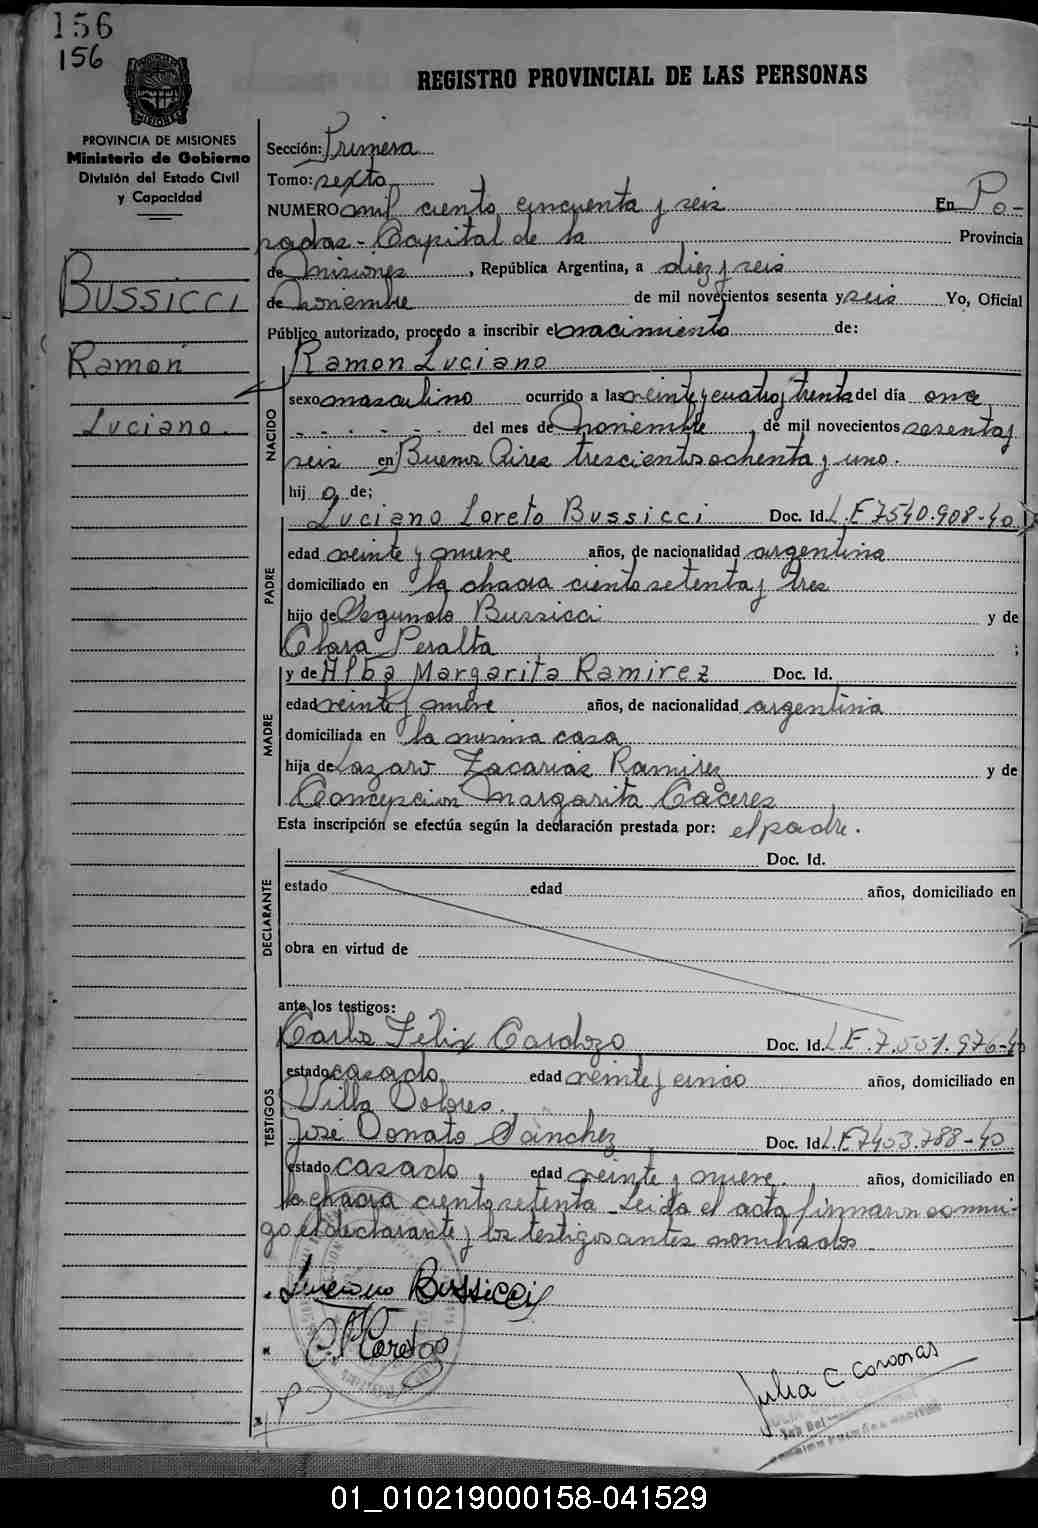 156
156
REGISTRO PROVINCIAL DE LAS PERSONAS
MISIONES
PROVINCIA DE MISIONES
Ministerio de Gobierno
División del Estado Civil
y Capacidad
BUSSICCI
Ramón
Luciano.
Sección: Primera
Tomo: sexto
NUMERO mil ciento cincuenta y seis En Po-
sadas - Capital de la Provincia
de Misiones, República Argentina, a diez y seis
de Noviembre de mil novecientos sesenta y seis Yo, Oficial
Público autorizado, procedo a inscribir el nacimiento de:
Ramon Luciano
NACIDO
sexo masculino ocurrido a las veinte y cuatro y treinta del día once
- - - - - - del mes de Noviembre de mil novecientos sesenta y
seis en Buenos Aires trescientos ochenta y uno.
hij o de;
PADRE
Luciano Loreto Bussicci Doc. Id. L.E 7540.908-40
edad veinte y nueve años, de nacionalidad argentina
domiciliado en la chacra ciento setenta y tres
hijo de Segundo Bussicci y de
Clara Peralta ;
MADRE
y de Alba Margarita Ramirez Doc. Id.
edad veinte y nueve años, de nacionalidad argentina
domiciliada en la misma casa
hija de Lazaro Zacarias Ramirez y de
Concepcion Margarita Caceres
Esta inscripción se efectúa según la declaración prestada por: el padre.
DECLARANTE
Doc. Id.
estado edad años, domiciliado en
obra en virtud de
ante los testigos:
TESTIGOS
Carlos Felix Cardozo Doc. Id. L.E.7.551.976-40
estado casado edad veinte y cinco años, domiciliado en
Villa Dolores.
José Donato Sánchez Doc. Id. L.E.7403.788-40
estado casado edad veinte y nueve. años, domiciliado en
la chacra ciento setenta - Leida el acta firmaron conmi-
go el declarante y los testigos antes nominados
Luciano Bussicci
Julia C Coronas
01_010219000158-041529